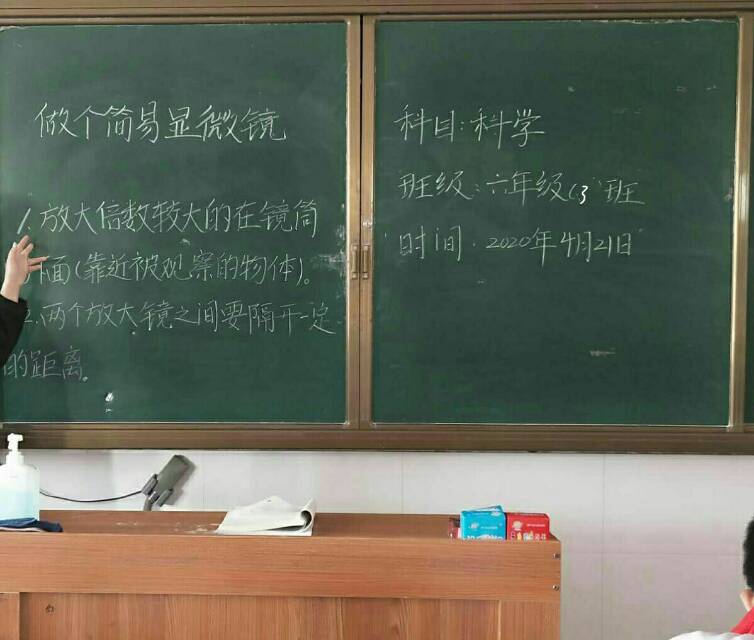 做个简易显微镜
1.放大倍数较大的在镜筒
下面(靠近被观察的物体)。
2.两个放大镜之间要隔开一定
的距离。
科目:科学
班级:六年级(3)班
时间:2020年4月21日